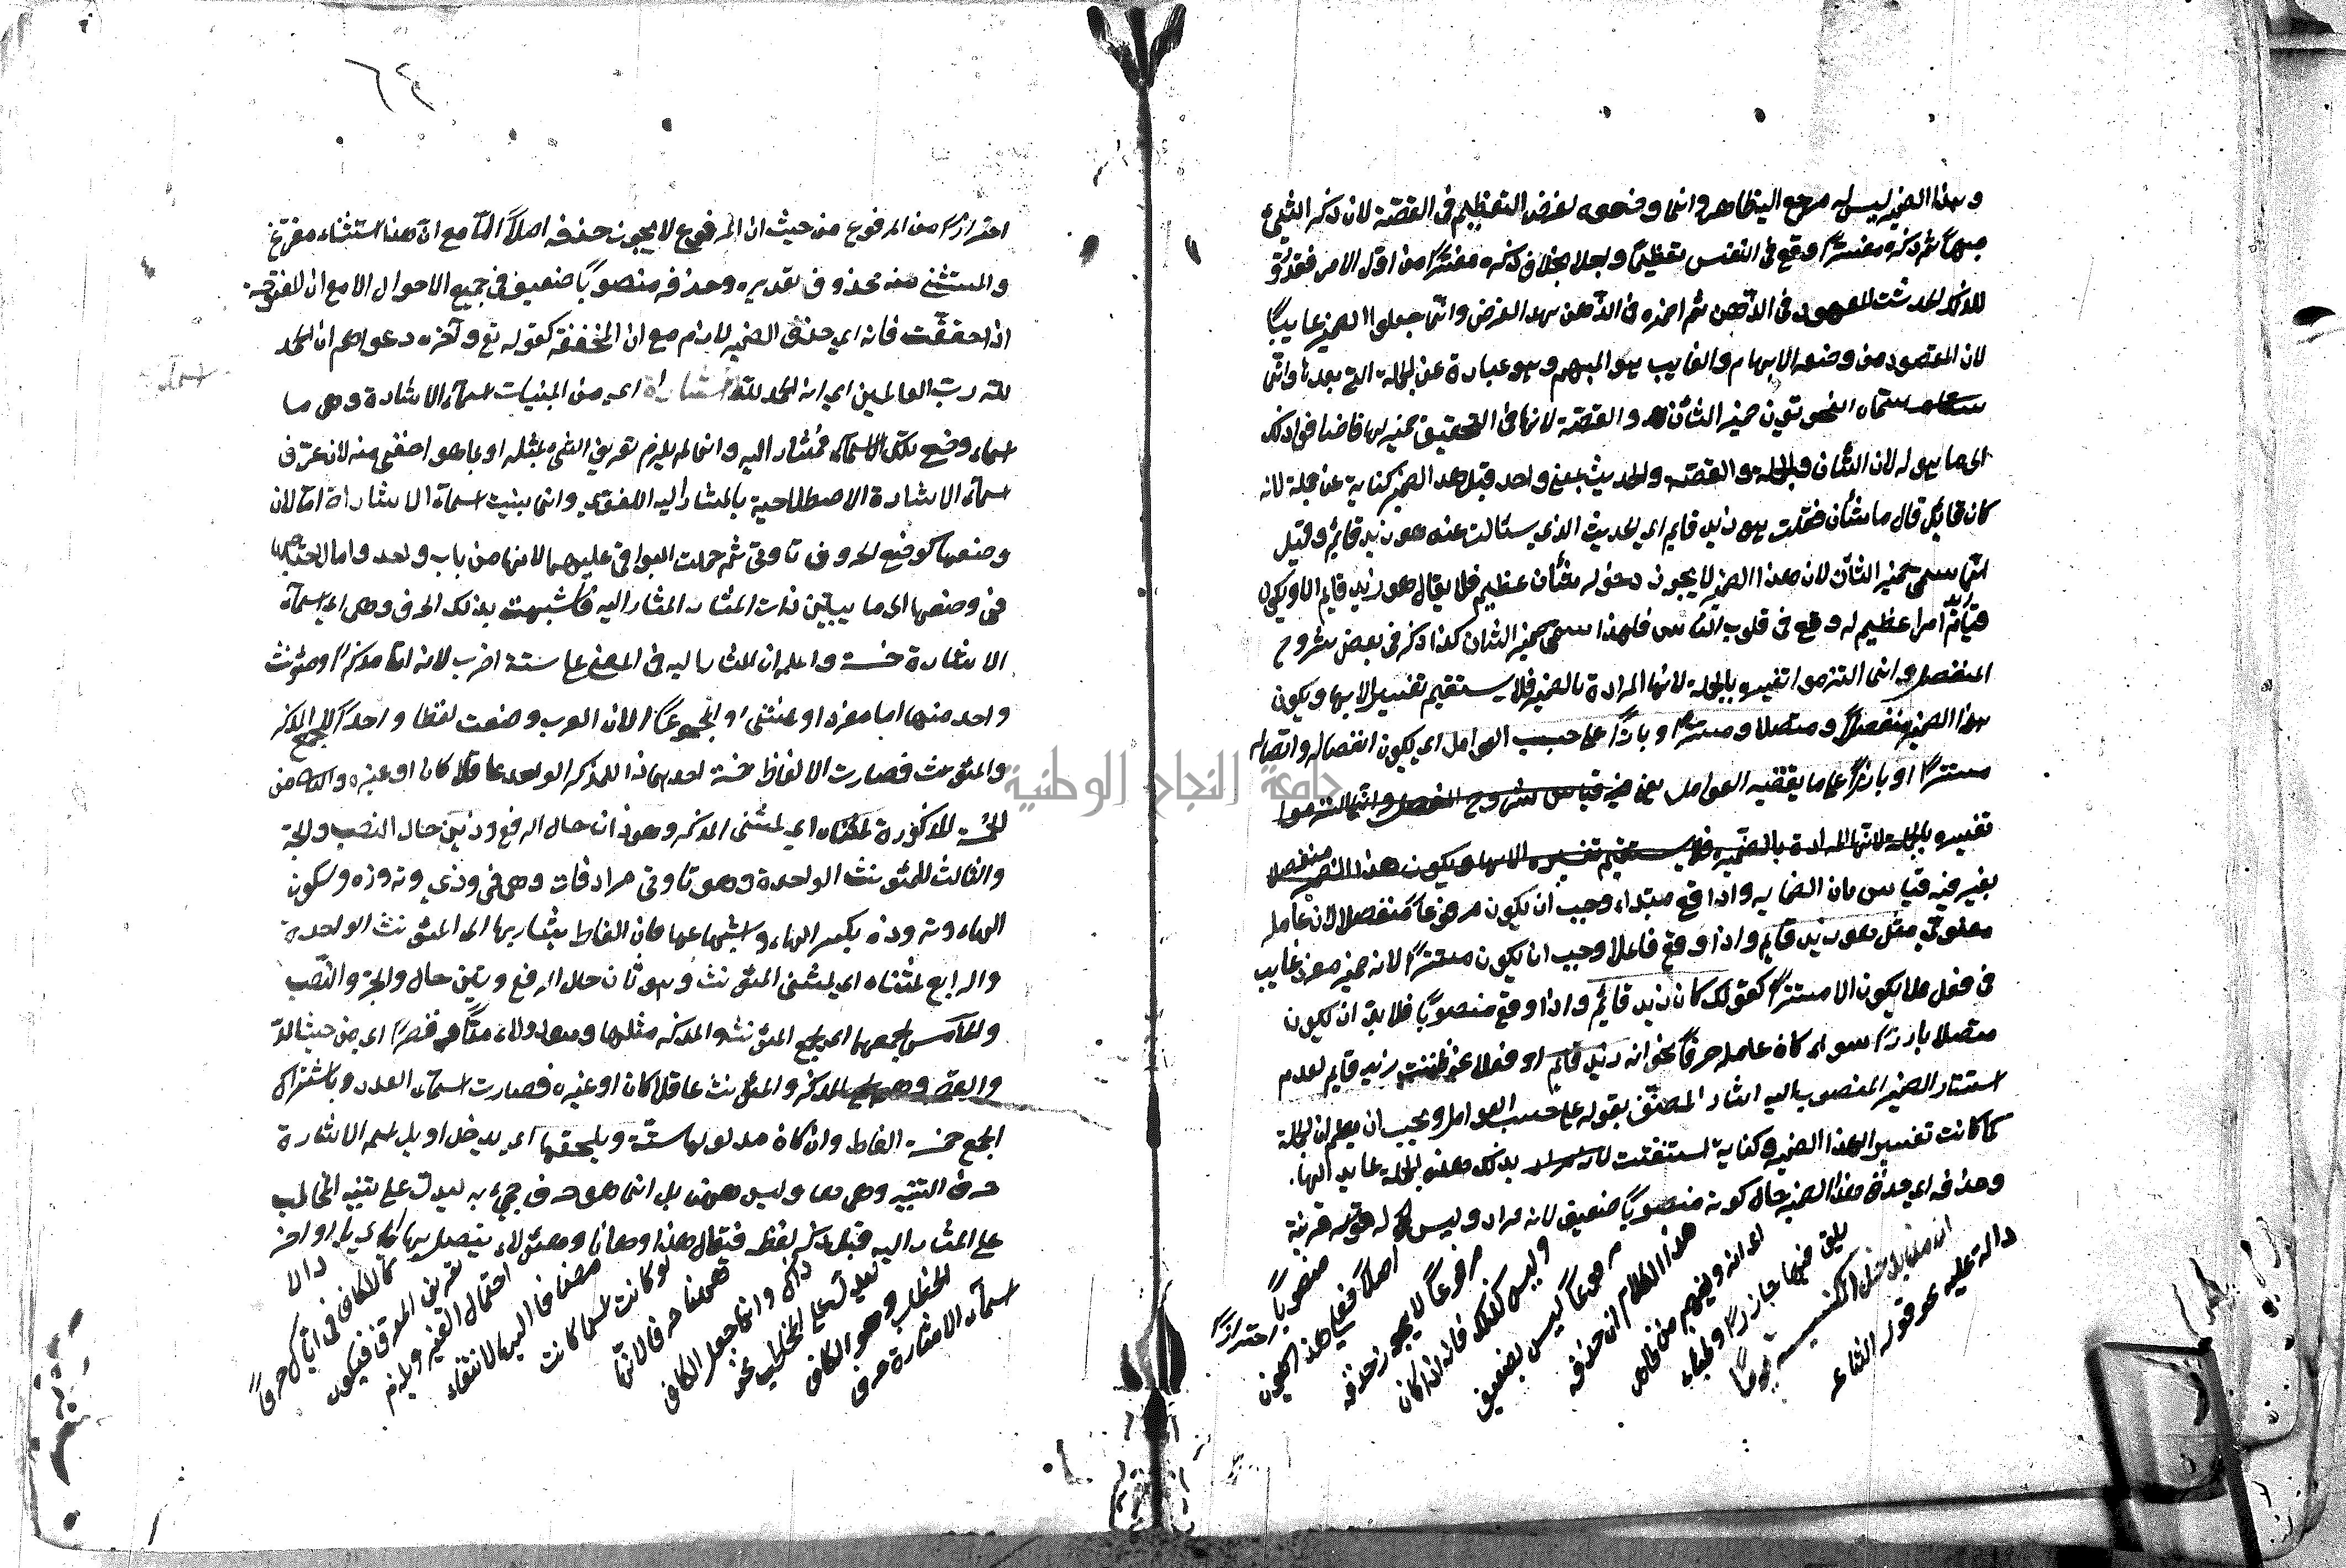 وهذا الضمير ليس له مرجع اليه ظاهر وانما وضعوه لغرض التعظيم في القصة لان ذكر الشئ
مبهما ثم ذكره مفسرا اوقع في النفس تعظيما واجلالا بخلاف ذكره مفسرا من اول الامر فقد
للذكر الحديث المعهود في الذهن ثم اضمره في الذهن بهذا الغرض وانما جعلوا الضمير غايبا
لان المقصود من وضعه الابهام والغايب هو المبهم وهو عبارة عن الجملة التي بعدها وانما
سماه النحويون ضمير الشان والقصة لانها في التحقيق ضمير لها فاضافوا ذلك
الى ما هو له لان الشان والجملة والقصة والحديث بمعنى واحد قبل هذا الضمير كناية عن جملة لانه
كان قايل قال ما شأن فقلت هو زيد قايم اي الحديث الذي سئالت عنه هو زيد قايم وقيل
انما سمى ضمير الشان لان هذا الضمير لا يجوز دخوله بشأن عظيم فلا يقال هو زيد قايم الا ويكون
قيام زيد امرا عظيم له وقع في قلوب الناس فلهذا سمى ضمير الشان كذا ذكر في بعض شروح
المفصل وانما التزموا تفسيره بالجملة لانها المرادة بالضمير فلا يستقيم تفسيره الا بها ويكون
هذا الضمير منفصلا ومتصلا ومستترا وبارزا على حسب العوامل اي يكون انفصاله واتصاله
مستترا او بارزا على ما يقتضيه العوامل يعني فيه قياس شروح المفصل وانما التزموا
تفسيره بالجملة لانها المرادة بالضمير فلا يستقيم تفسيره الا بها ويكون هذا الضمير منفصلا
بغير فيه قياس فان الضماير واذا وقع مبتداء وجب ان يكون مرفوعا منفصلا لان عامله
معنوي مثل هو زيد قايم واذا وقع فاعلا وجب ان يكون مستترا لانه ضمير مفرد غايب
في فعل فلا يكون الا مستترا كقولك كان زيد قايم واذا وقع منصوبا فلا بد ان يكون
متصلا بارزا سواء كان عامله حرفا نحو انه زيد قايم او فعلا نحو ظننته زيد قايم لعدم
استتار الضمير المنصوب اليه اشار المصنف بقوله على حسب العوامل ويجب ان يعلم ان الجملة
كما كانت تفسيرا لهذا الضمير وكناية استغنت بذلك وهذه الجملة عايد اليها.
وحذفه اي حذف هذا الضمير حال كونه منصوبا ضعيف لانه مراد وليس له قرينة
دالة عليه نحو قول الشاعر
ان من يدخل الكنيسة يوما
يلق فيها جازرا وظباء
اي انه ويفهم من ظاهر
هذا الكلام ان حذفه
مرفوعا ليس بضعيف
وليس كذلك فانه اذا كان
مرفوعا لا يجوز حذفه
اصلا فقيل هذا يكون
منصوبا احترازا
٦٤
احترازا من المرفوع من حيث ان المرفوع لا يجوز حذفه اصلا الا مع ان هذا استثناء مفرغ
والمستثنى منه محذوف تقديره وحذفه منصوبا ضعيف في جميع الاحوال الا مع ان المفتوحة
اذا خففت فانه اي حذف الضمير لازم مع ان المخففة كقوله تع وآخر دعواهم ان الحمد
لله رب العالمين اي انه الحمد لله اي من المبنيات اسماء الاشارة وهي ما
اسماء وضع تلك الاسماء لمشار اليه وانما لم يلزم تعريف الشئ بمثله او بما هو اخفى منه لان عرف
اسماء الاشارة الاصطلاحية بالمشار اليه اللغوي وانما بنيت اسماء الاشارة اما لان
وضعها كوضع الحروف تا وتي ثم حملت البواقي عليها لانها من باب واحد واما لاحتياجها
في وضعها الى ما يبين ذات المشار المشار اليه فاشبهت بذلك الحرف وهي اي اسماء
الاشارة خمسة واعلم ان المشار اليه في المعنى على ستة اضرب لانه اما مذكرا ومؤنث
واحد منها اما مفرد او مثنى او مجموعا الا ان العرب وضعت لفظا واحدا لجمع المذكر
والمؤنث فصارت الالفاظ خمسة احدها ذا للمذكر الواحد عاقلا كان او غيره والثاني من
الخمسة المذكورة لمثناه اي لمثنى المذكر وهو ذان حال الرفع وذين حال النصب والجر
والثالث للمؤنث الواحدة وهو تا وتي مرادفات وهي في وذي وته وذه وبسكون
الهاء وته وذه بكسر الهاء واشباعها فان الفاظ يشار بها الى المؤنث الواحدة
والرابع لمثناه اي لمثنى المؤنث وهو تان حال الرفع وتين حال والجر والنصب
والخامس لجمعهما اي لجمع المؤنث والمذكر مثلها وهو اولاء مدا وقصرا اي من حيث المد
والقصر وهو لجمع المذكر والمؤنث عاقلا كان او غيره فصارت اسماء العدد وباشتراك
الجمع خمسة الفاظ وان كان مدلولها ستة ويلحقها اي يدخل اوايل اسم الاشارة
حرف التنبيه وهي ها وليس همنا بل انما هو حرف جيء به ليدل على تنبيه المخاطب
على المشار اليه قبل ذكر لفظه فيقال هذا وهانا وهؤلاء يتصل بها اي باواخر
اسماء الاشارة حرف
الخطاب وهو الكاف
ليدل على المخاطب نحو
ذاك وانما جعل الكاف
ههنا حرفا لانها
لو كانت اسما كانت
مضافا اليها لانتفاء
احتمال الغير ويلزم
تعريف المعرف فيكون
كالكاف في اياك حرفا
دالا